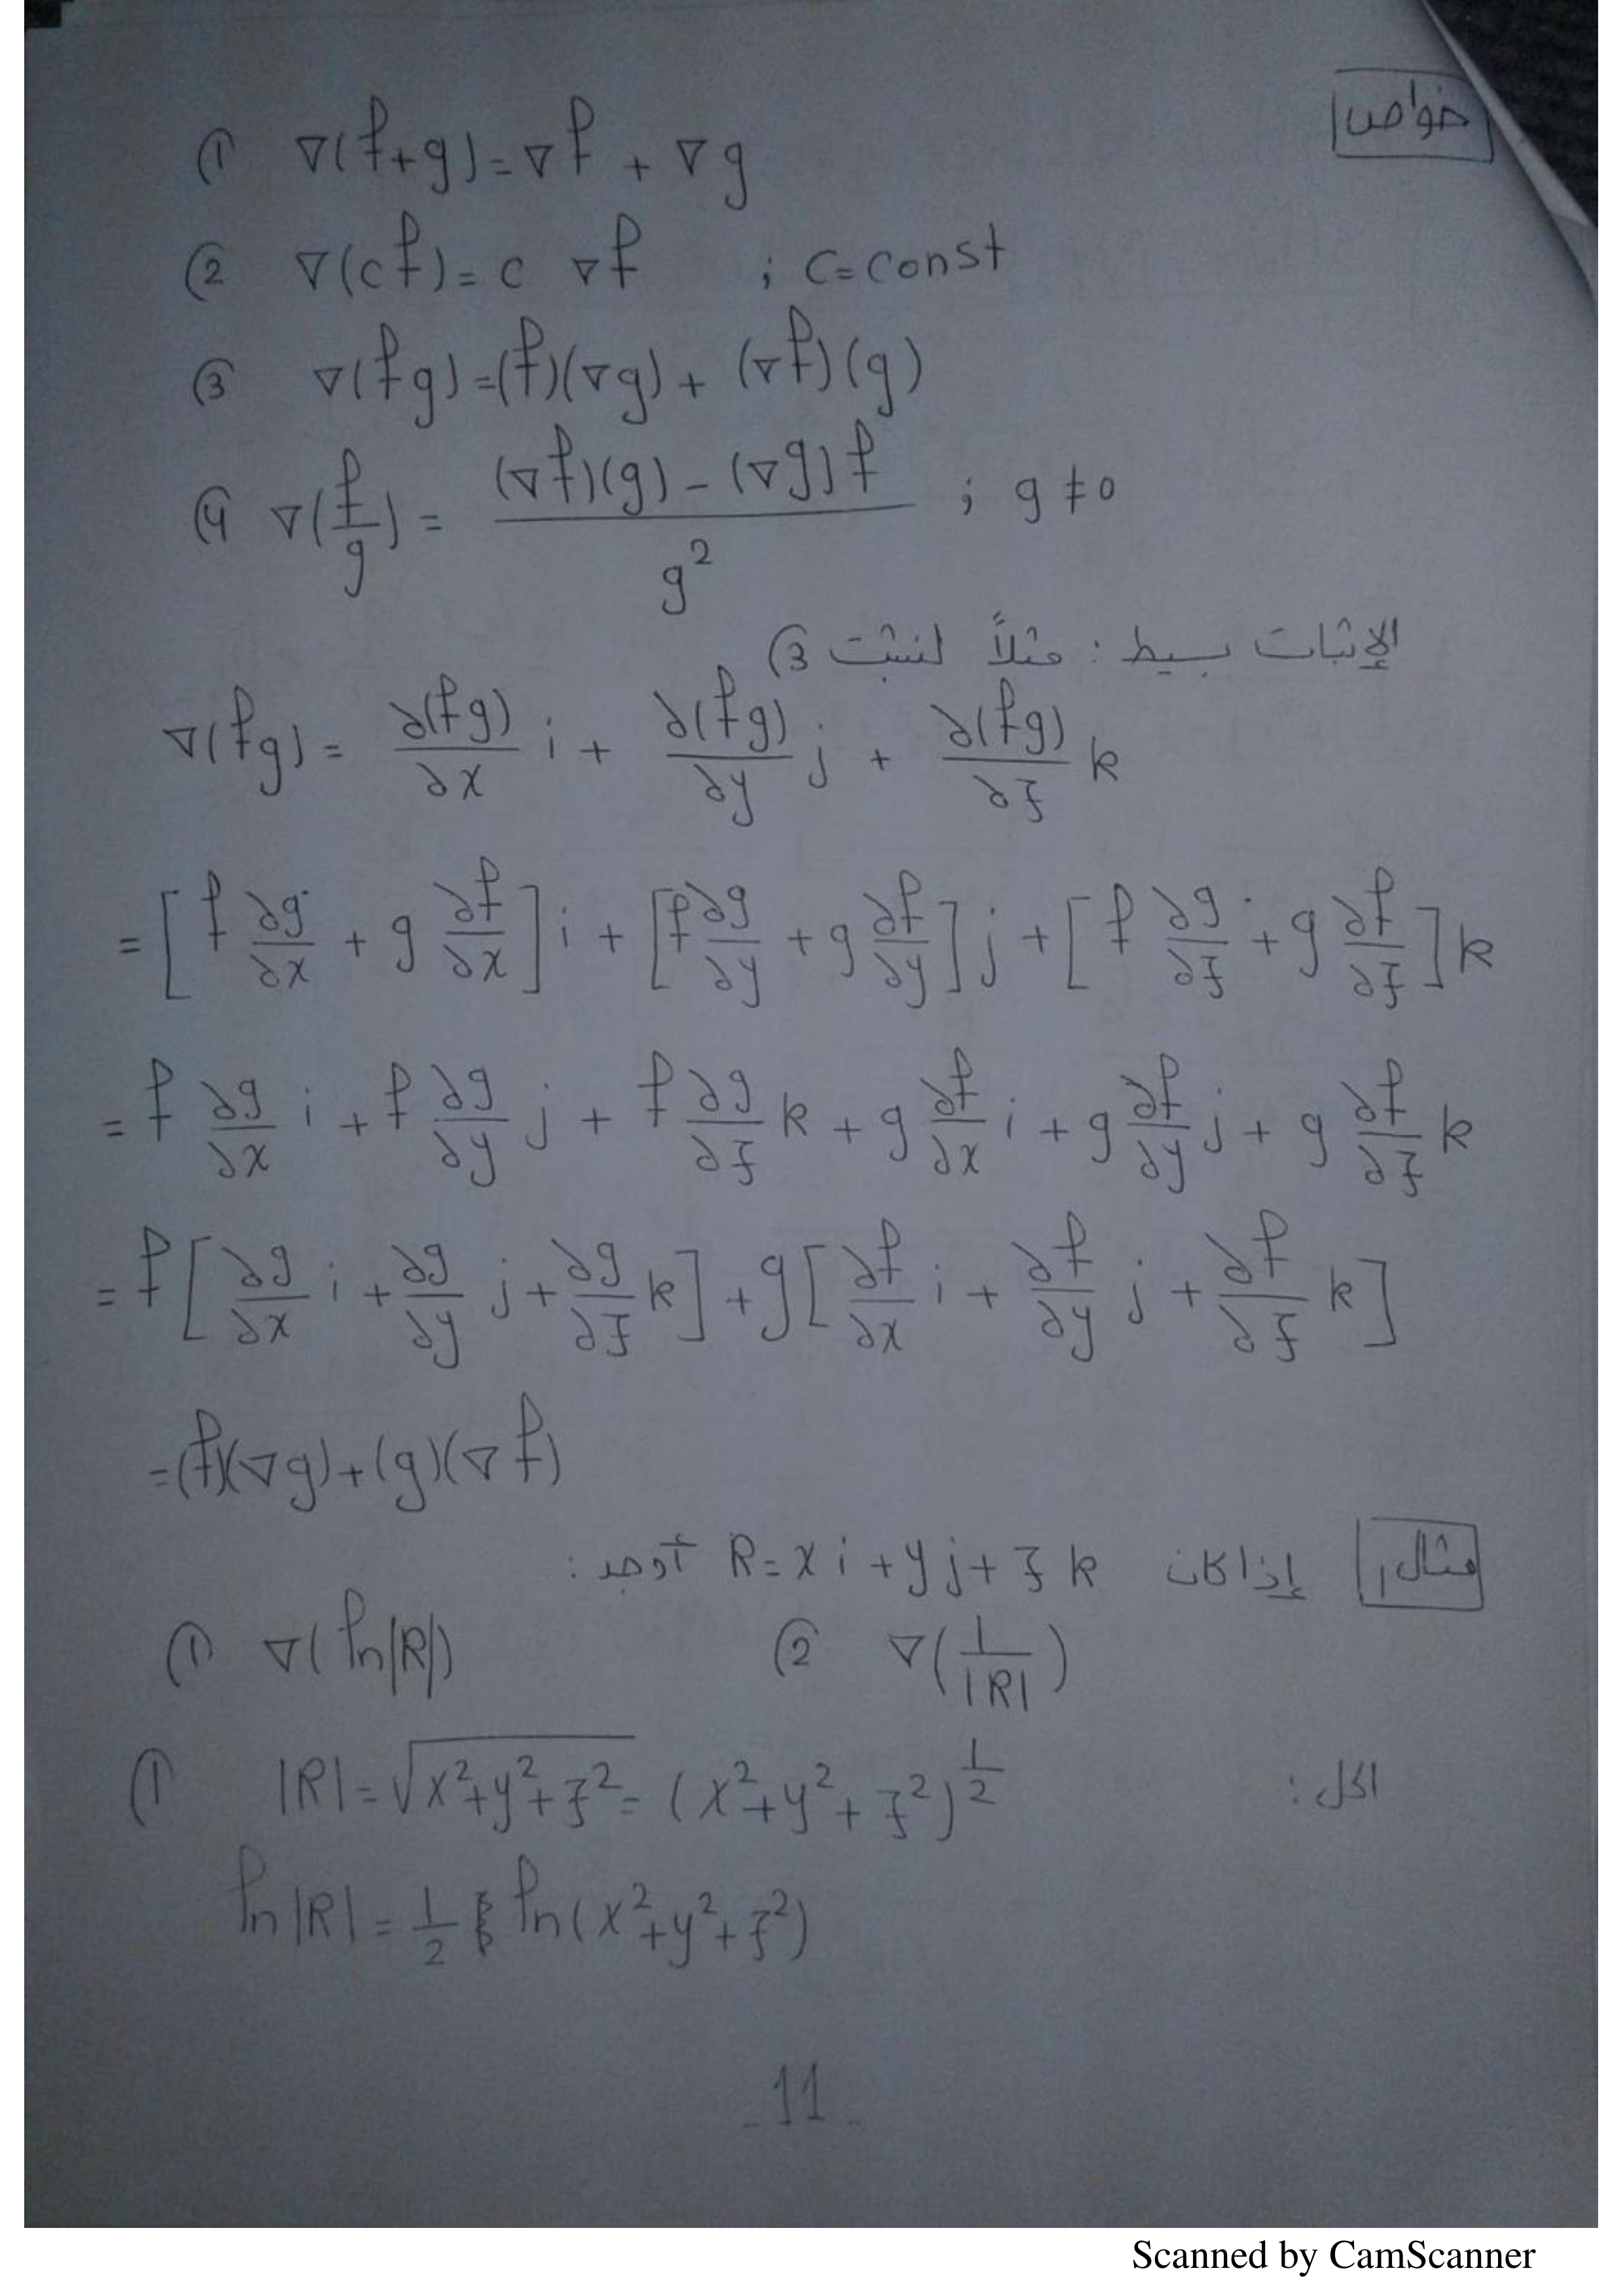 خواص
① ∇(f+g)=∇f + ∇g
② ∇(cf)= c ∇f ; c=const
③ ∇(fg)=(f)(∇g)+ (∇f)(g)
④ ∇(f/g)= ((∇f)(g) - (∇g)f)/g² ; g≠0
الإثبات بسيط : مثلاً لنثبت ③
∇(fg)= ∂(fg)/∂x i + ∂(fg)/∂y j + ∂(fg)/∂z k
=[f ∂g/∂x + g ∂f/∂x] i + [f ∂g/∂y + g ∂f/∂y] j + [f ∂g/∂z + g ∂f/∂z] k
= f ∂g/∂x i + f ∂g/∂y j + f ∂g/∂z k + g ∂f/∂x i + g ∂f/∂y j + g ∂f/∂z k
= f[∂g/∂x i + ∂g/∂y j + ∂g/∂z k] + g[∂f/∂x i + ∂f/∂y j + ∂f/∂z k]
=(f)(∇g)+(g)(∇f)
مثال1 إذا كان R=x i + y j + z k أوجد :
① ∇(ln|R|) ② ∇(1/|R|)
الحل :
① |R|=√(x²+y²+z²) = (x²+y²+z²)^(1/2)
ln|R| = 1/2 ln(x²+y²+z²)
- 11 -
Scanned by CamScanner